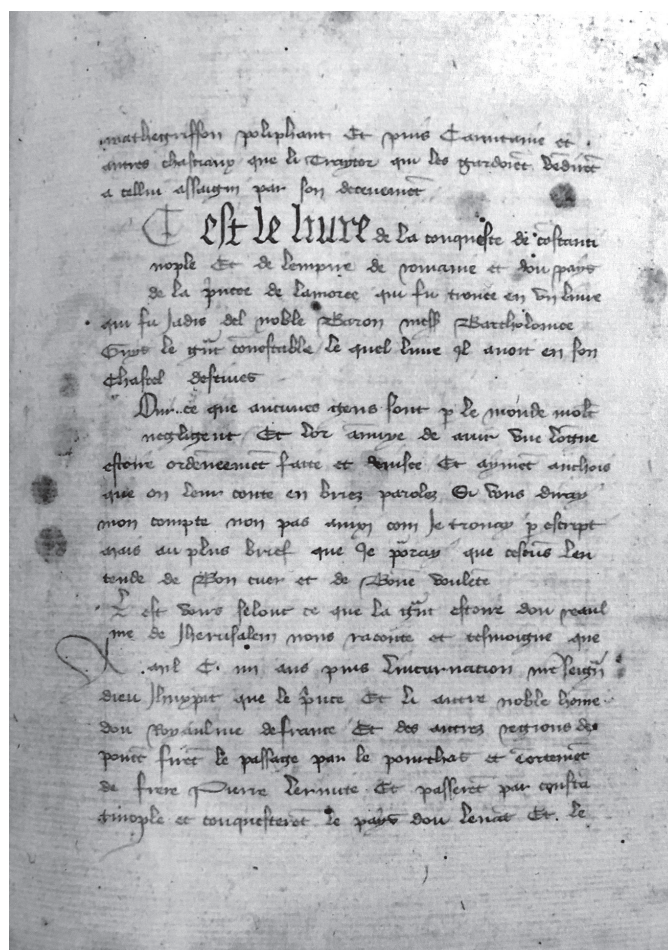 mathegriffon poliphant Et puis Caintaine et
autres chastiaux que li Traytor qui les gardoiēt vēdirēt
a cellui assaigni par son decevemēt
C est le livre de la conqueste de cōstanti
nople Et de lempire de romanie et dou pays
de la p̄ncee de lamoree qui fu trouve en vn livre
qui fu Jadis del noble Baron mess Bartholomee
Guys le gn̄t conestable le quel livre Jl avoit en son
Chastel destives
Our ce que aucunes gens sont p le monde molt
negligent Et lor anuye de auir vne lōgue
estoire ordeneemēt faite et devisee Et aymēt anchois
que on leur conte en briez parolez Si vous diray
mon compte non pas ainxi com Je trovay p escript
mais au plus brief que Je poray que cescūs len
tende de Bon cuer et de Bone voulēte
L est voirs selonc ce que la gn̄t estoire dou reaul
me de Jherusalem nous raconte et tesmoigne que
A anl C. iiii ans puis lincarnation nr̄e seign̄
dieu Jhuxpit que le p̄nce Et li autre noble home
dou Royaulme de france Et des autrez regions de
ponēt firēt le passage par le pourchas et ēortemēt
de frere Pierre lermite Et passerēt par cōsta
tinople et conquesterēt le pays dou levāt Et le